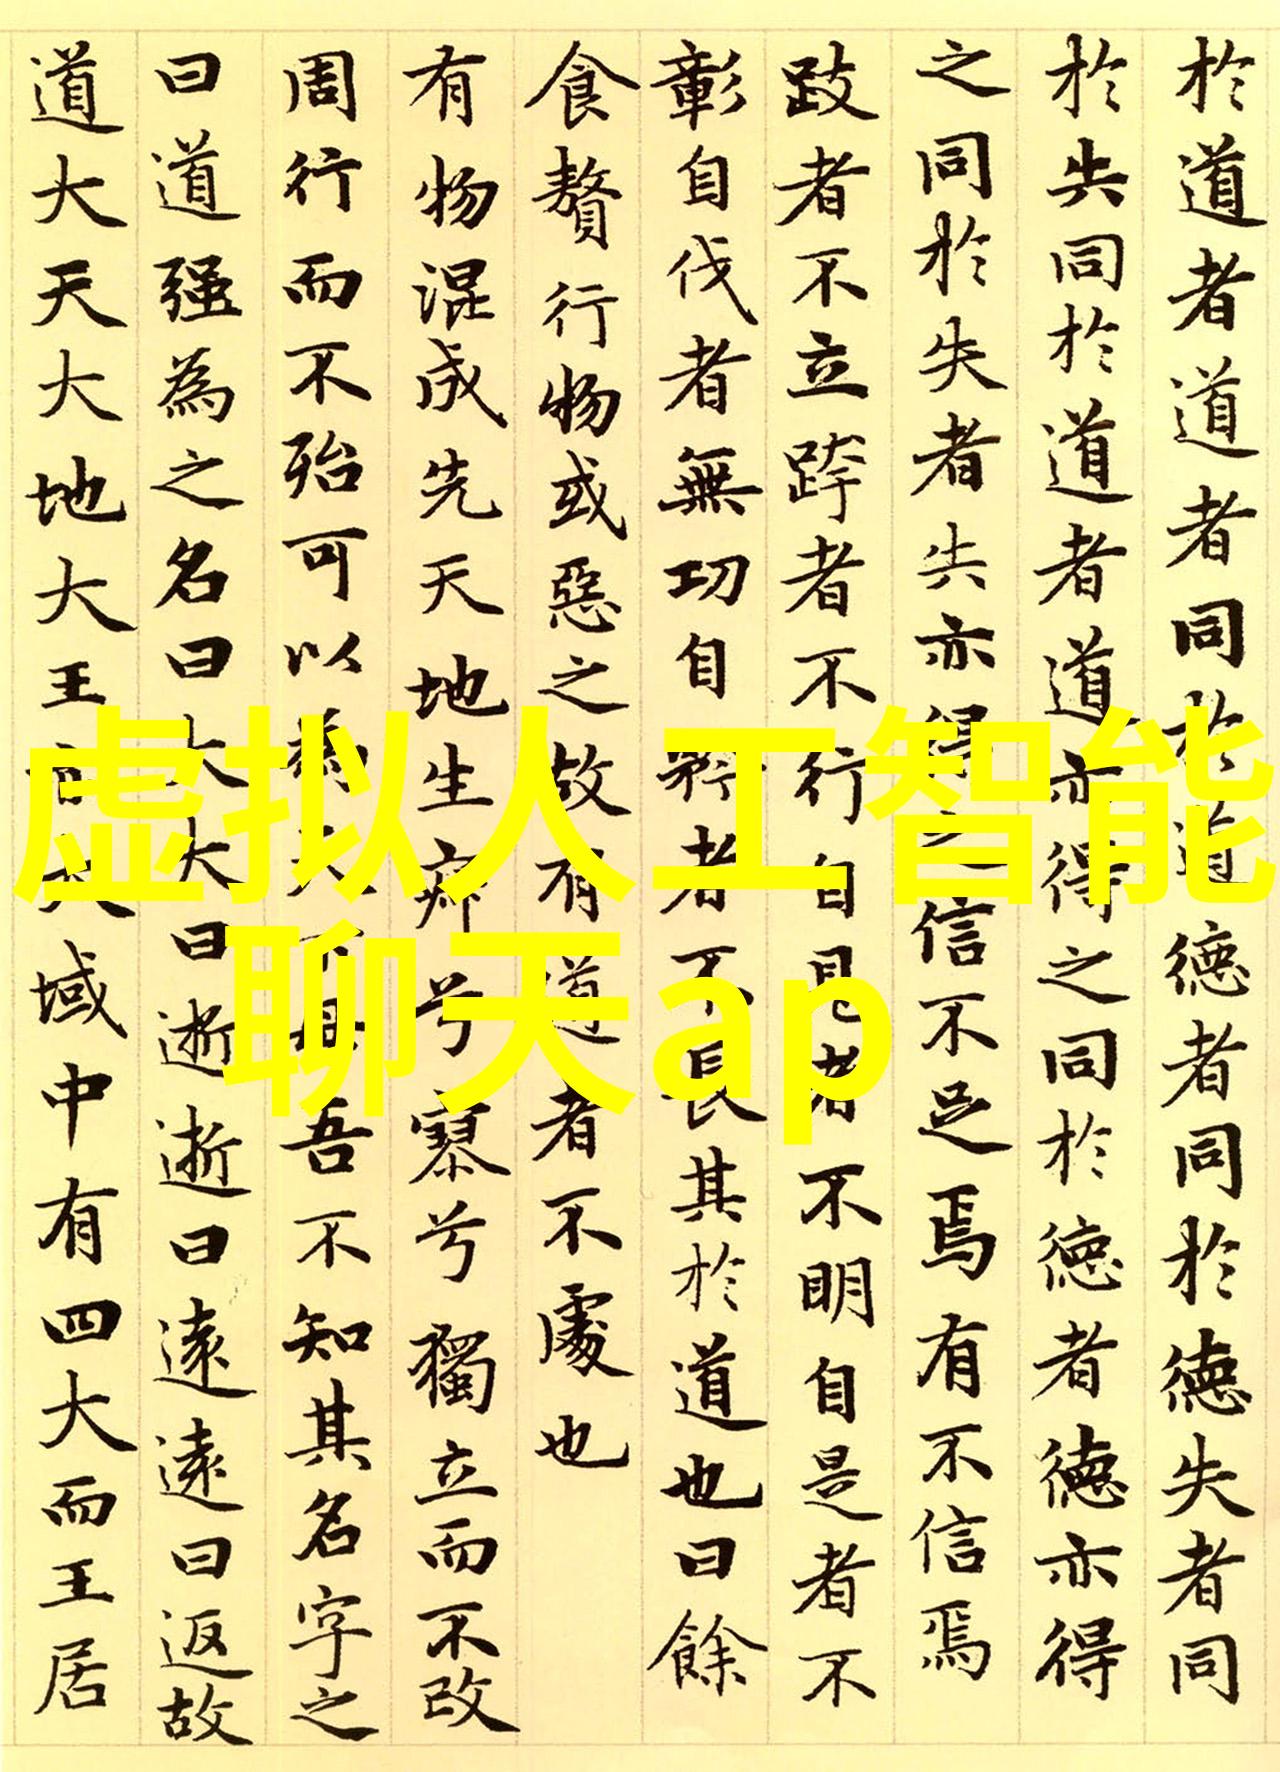 於道者道者同於道德者同於德失者同
於失同於道者道亦得之同於德者德亦得
之同於失者失亦得之信不足焉有不信焉
跂者不立跨者不行自見者不明自是者不
彰自伐者無功自矜者不長其於道也曰餘
食贅行物或惡之故有道者不處也
有物混成先天地生寂兮寥兮獨立而不改
周行而不殆可以為天下母吾不知其名字之
曰道强為之名曰大大曰逝逝曰遠遠曰返故
道大天大地大王亦大域中有四大而王居
虚拟人工智能
聊天ap